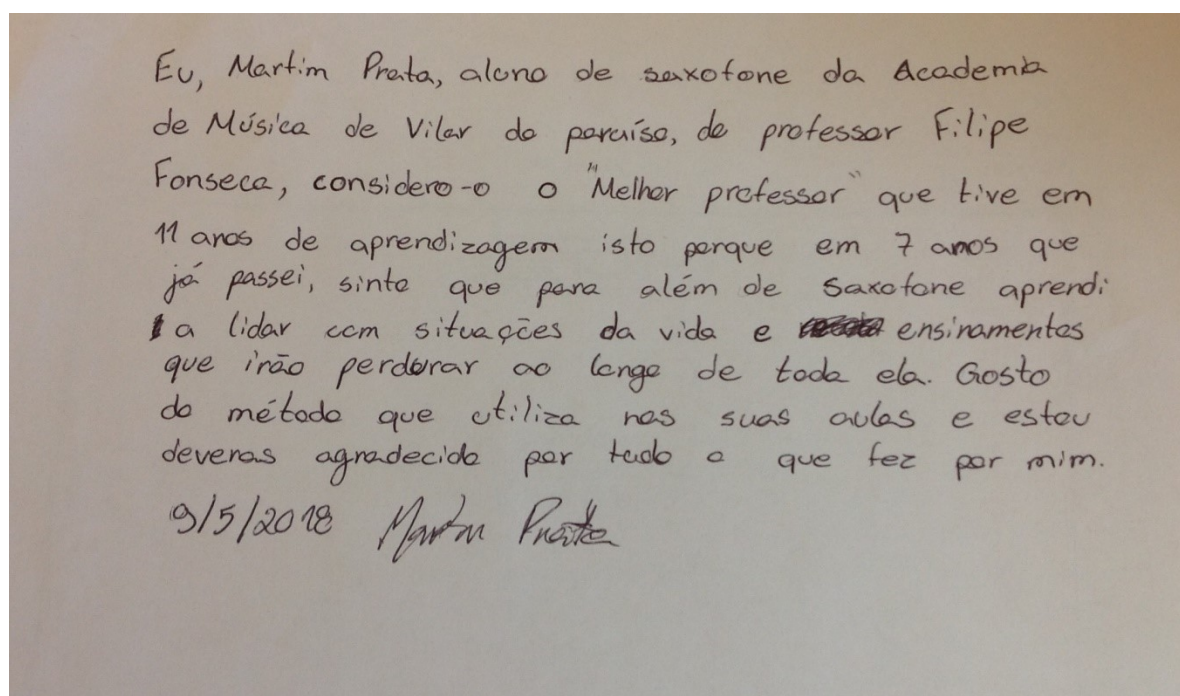 Eu, Martim Prata, aluno de saxofone da Academia
de Música de Vilar do paraíso, do professor Filipe
Fonseca, considero-o o "Melhor professor" que tive em
11 anos de aprendizagem isto porque em 7 anos que
já passei, sinto que para além de Saxofone aprendi
a lidar com situações da vida e ensinamentos
que irão perdurar ao longo de toda ela. Gosto
do método que utiliza nas suas aulas e estou
deveras agradecido por tudo o que fez por mim.
9/5/2018 Martim Prata